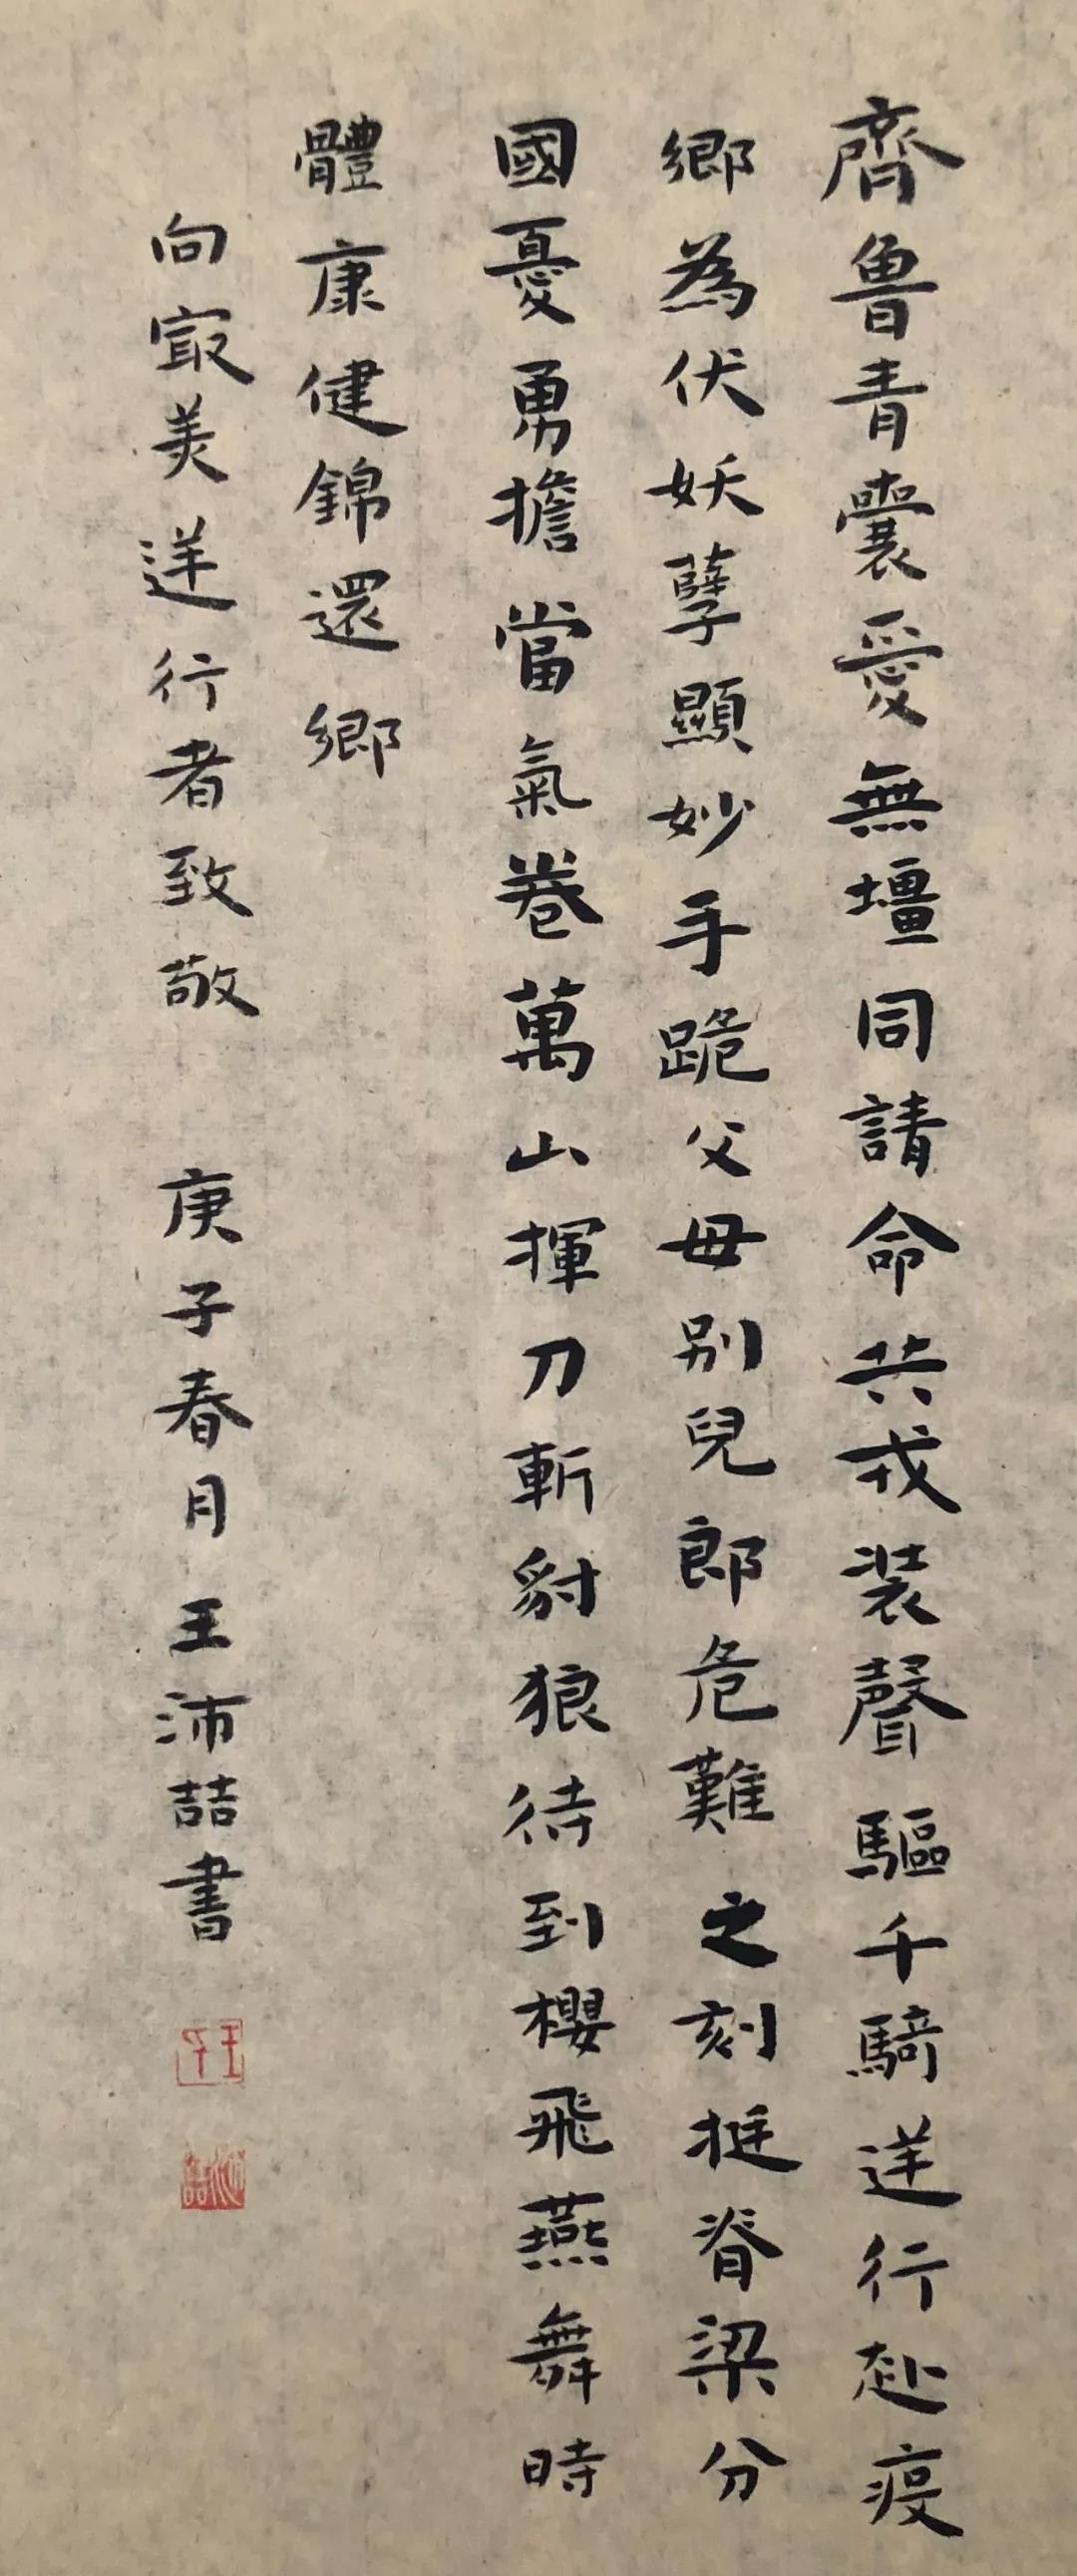 齊魯青囊愛無壃同請命共戎装聲驅千騎逆行赴疫
鄉為伏妖孽顯妙手跪父母別兒郎危難之刻挺脊梁分
國憂勇擔當氣卷萬山揮刀斬豺狼待到櫻飛燕舞時
體康健錦還鄉
向冣美逆行者致敬 庚子春月王沛喆書